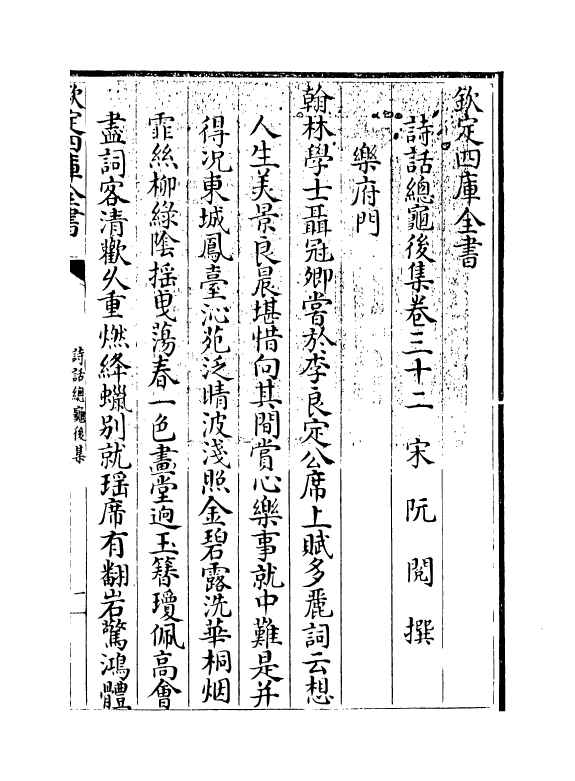 欽定四庫全書
詩話總龜後集卷三十二　宋　阮　閲　撰
樂府門
翰林學士聶冠卿嘗於李良定公席上賦多麗詞云想
人生美景良晨堪惜向其間賞心樂事就中難是并
得況東城鳳臺沁苑泛晴波淺照金碧露洗華桐烟
霏絲柳緑陰揺曵蕩春一色畫堂逈玉簪瓊佩髙會
盡詞客清歡乆重燃絳蠟别就瑶席有翻岩驚鴻體
欽定四庫全書
詩話總龜後集
一